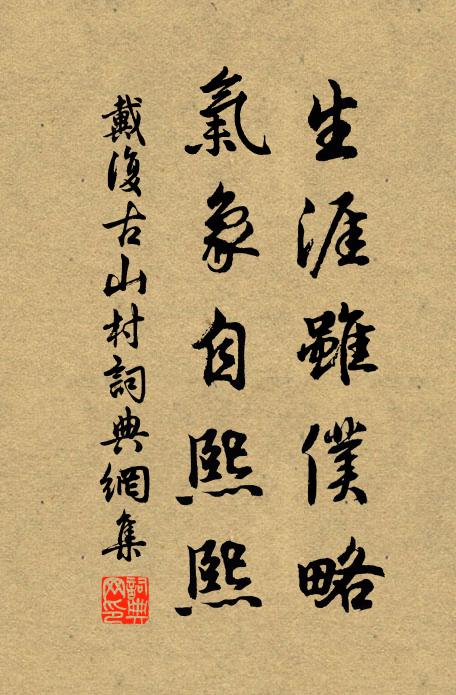 生涯雖僕略
氣象自熙熙
戴復古山村詞典網集
詞典網印